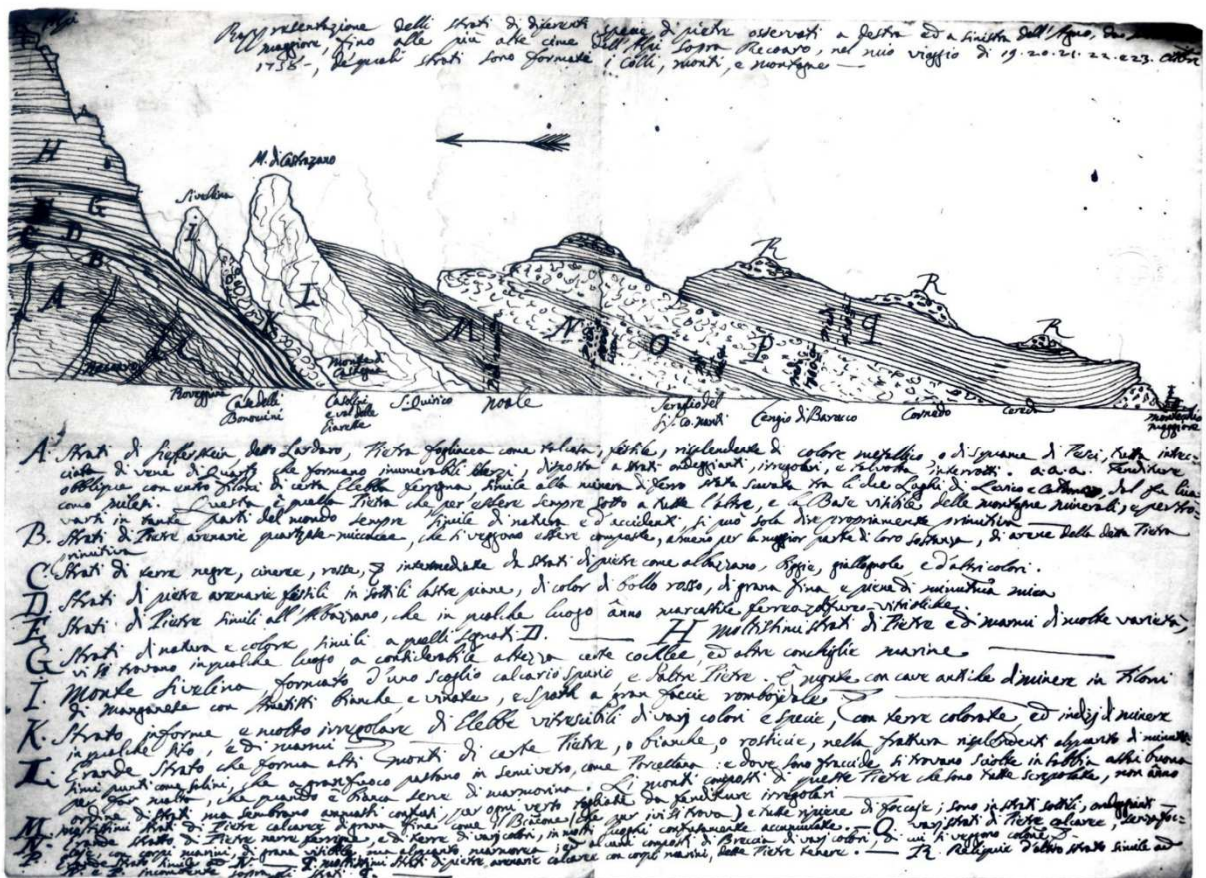 Rappresentazione delli strati di diverenti specie di pietre osservati a destra ed a sinistra dell'Agno, da
maggiore, fino alle più alte cime dell'Alpi sopra Recoaro, nel mio viaggio di 19. 20. 21. 22. e 23. ottbre
1758, de' quali strati sono formati i colli, monti, e montagne
M. di Castrazano
Sivellina
H
G
D
C
B
A
I
L
K
M
N
O
P
q
R
R
R
Recoaro
Roveggiana
Case delli Bonomini
Casolini e val delle Giarette
Monte di
S. Quirico
Noale
Seraglio del Sig. Co.
Cengio di Baracco
Cornedo
Cereda
montecchio maggiore
A. Strati di detto Lardaro, Pietra fogliacea come talcosa, fissile, risplendente di colore metallico o di squame di Pesci, tutta intrec-
ciata di vene di Quarzo che formano inumerabili scherzi, disposta a strati ondeggianti, irregolari, e talvolta interrotti. a.a.a. Fenditure
oblique con entro filoni di certa ferrigna, simile alla minera di ferro stata scavata tra li due Laghi di Levico e
come Questa è quella Pietra che per essere sempre sotto a tutte l'altre, e la Base visibile delle montagne minerali, e per tro-
varsi in tante parti del mondo sempre simile di natura e d'accidenti, si può sola dire propriamente primitiva
B. Strati di Pietre arenarie quarzose-micacee, che si veggono essere composte, almeno per la maggior parte di loro sostanza, di arene della detta Pietra
primitiva
C. Strati di terre negre, cineree, rosse, & intermediate da strati di pietre come albazzano, bigie, giallognole, e d'altri colori.
D. Strati di pietre arenarie fissili in sottili lastre piane, di color di bollo rosso, di grana fina e piene di minutissima mica
E. Strati di Pietre simili all'Albazzano, che in qualche luogo ânno marcassite ferreo-zulfureo-vitrioliche.
G. Strati di natura e colore simili a quelli segnati D. H moltissimi strati di Pietre e di marmi di molte varietà,
vi si trovano in qualche luogo, a considerabile altezza certe cocklee, ed altre conchiglie marine
I. Monte Sivelina, formato d'uno scoglio calcario spurio, e d'altre Pietre. È monte con cave antiche di minere in Filoni
di manganese con Ametisti bianche e vinate, e Spath a gran faccie romboidale
K. Strato informe e molto irregolare di vitrescibili di varj colori e specie, con terre colorate ed indizj di minere
in qualche sito, e di marmi
L. Grande strato che forma alti monti di certe Pietre, o bianche, o rossiccie, nella frattura risplendenti alquanto di minutis-
simi punti come salini, che a gran fuoco passano in semivetro, come Porcellana: e dove sono fraccide si trovano sciolte in sabbia assai buona
per far malta, che quando è bianca serve di marmorina. Li monti composti di queste Pietre che sono tutte screpolate, non anno
ordine di strati ma sembrano ammassi confusi, per ogni verso tagliati da fenditure irregolari
M. moltissimi strati di Pietre calcaree a grana fine come il Biancone (che per ivi si trova) e tutte ripiene di foccaje; sono in strati sottili, ondeggianti
N. Grande strato di Pietre nere ferree, e di terre di varj colori, in molti luoghi confusamente accumulate. O varj strati di Pietre calcaree, senza foc-
caje con corpi marini, di grana visibile ma alquanto marmorea; ed alcune composti di Breccia di varj colori, di cui si veggono colonne &
P. Grande strato simile ad N. Q. moltissimi strati di pietre arenarie calcaree con corpi marini, dette Pietre tenere. R. Reliquie d'altro strato simile ad
N. e P. incumbente sopra gli strati q.